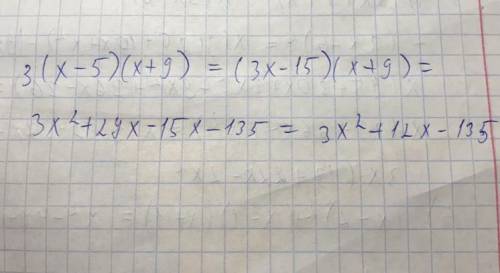 3(x-5)(x+9) = (3x-15)(x+9) =
3x²+27x-15x-135 = 3x²+12x-135